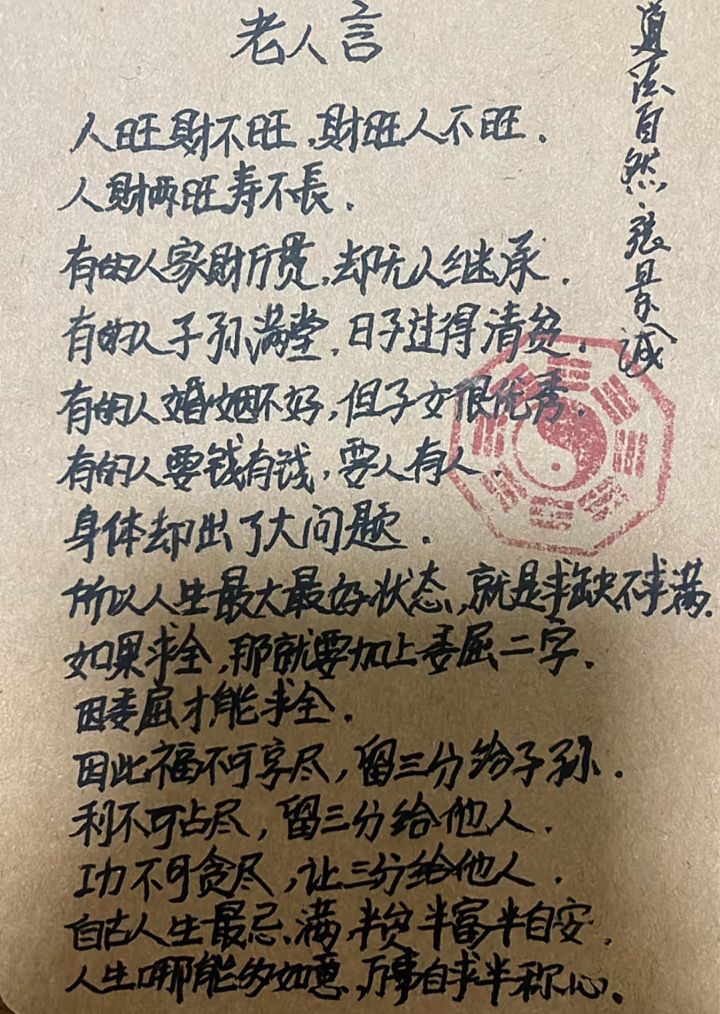 老人言
人旺財不旺，財旺人不旺．
人財两旺寿不長．
有的人家財万贯，却无人继承．
有的人子孙满堂，日子过得清贫．
有的人婚姻不好，但子女很优秀．
有的人要钱有钱，要人有人．
身体却出了大问题．
所以人生最大最好状态，就是求缺不求满．
如果求全，那就要加上委屈二字．
因委屈才能求全．
因此福不可享尽，留三分给子孙．
利不可占尽，留三分给他人．
功不可贪尽，让三分给他人．
自古人生最忌满，半贫半富半自安．
人生哪能多如意，万事自求半称心．
道法自然，張景诚